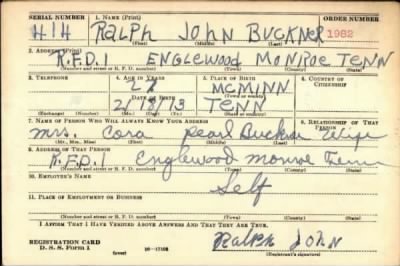 SERIAL NUMBER 1. NAME (Print) ORDER NUMBER
414 RALPH JOHN BUCKNER 1982
(First) (Middle) (Last)
2. ADDRESS (Print)
R.F.D.1 ENGLEWOOD MONROE TENN
(Number and street or R. F. D. number) (Town) (County) (State)
3. TELEPHONE 4. AGE IN YEARS 5. PLACE OF BIRTH 6. COUNTRY OF CITIZENSHIP
MCMINN
DATE OF BIRTH (Town or county)
TENN
(Exchange) (Number) (Mo.) (Day) (Yr.) (State or country)
7. NAME OF PERSON WHO WILL ALWAYS KNOW YOUR ADDRESS 8. RELATIONSHIP OF THAT PERSON
Mrs. Cora Pearl Buckner Wife
(Mr., Mrs., Miss) (First) (Middle) (Last)
9. ADDRESS OF THAT PERSON
R.F.D.1 Englewood Monroe Tenn
(Number and street or R. F. D. number) (Town) (County) (State)
10. EMPLOYER'S NAME
Self
11. PLACE OF EMPLOYMENT OR BUSINESS
(Number and street or R. F. D. number) (Town) (County) (State)
I AFFIRM THAT I HAVE VERIFIED ABOVE ANSWERS AND THAT THEY ARE TRUE.
REGISTRATION CARD Ralph John
D. S. S. Form 1 (over) 16—17105 (Registrant's signature)